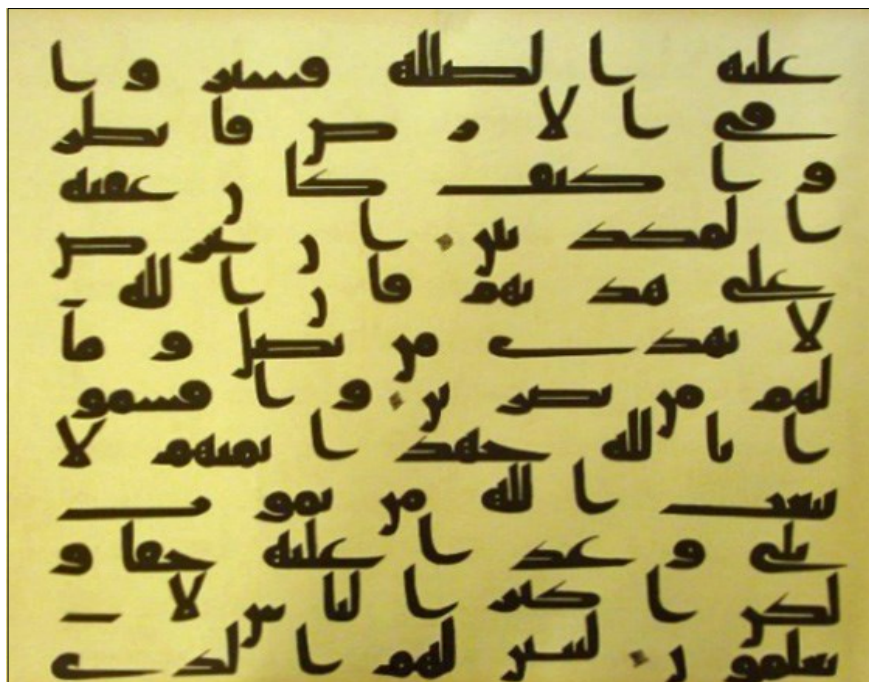 عليه الضللة فسيروا
في الارض فانظر
وا كيف كان عقبة
المكذبين ان تحرص
على هديهم فان الله
لا يهدي من يضل وما
لهم من نصرين واقسمو
ا بالله جهد ايمنهم لا
يبعث الله من يموت
بلى وعدا عليه حقا و
لكن اكثر الناس لا
يعلمون ليبين لهم الذي